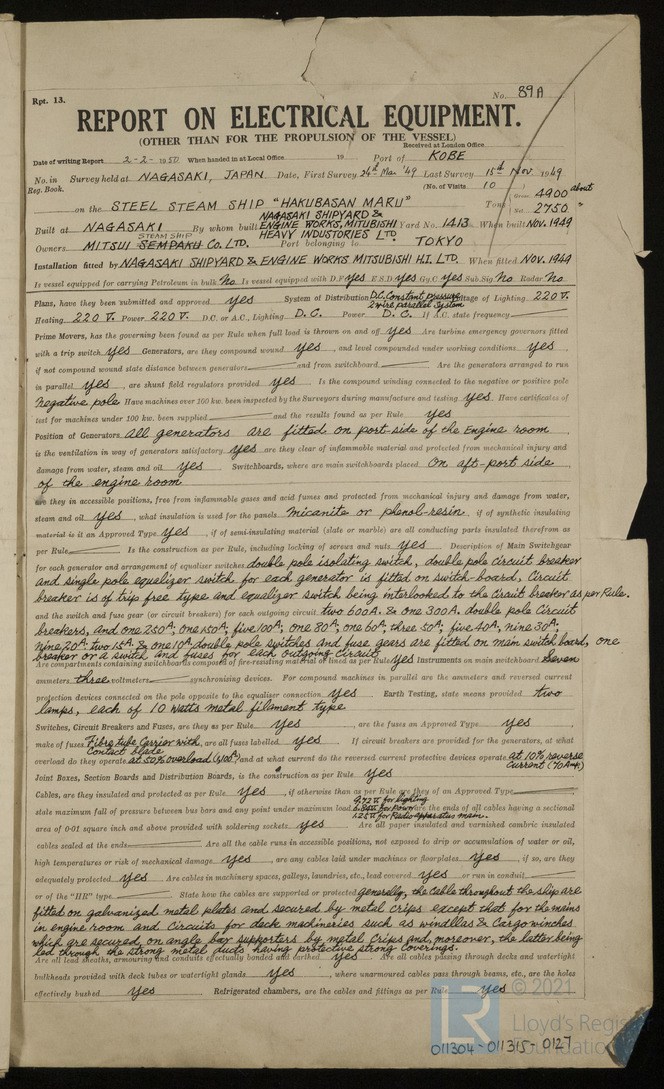 Rpt. 13.
No. 89A
REPORT ON ELECTRICAL EQUIPMENT.
(OTHER THAN FOR THE PROPULSION OF THE VESSEL)
Received at London Office
Date of writing Report 2-2-1950 When handed in at Local Office 19 Port of KOBE
No. in Survey held at NAGASAKI, JAPAN Date, First Survey 24th Mar '49 Last Survey 15th Nov. 1949
Reg. Book. (No. of Visits 10 )
on the STEEL STEAM SHIP "HAKUBASAN MARU" Tons Gross 4900 about
Net 2750 "
Built at NAGASAKI By whom built NAGASAKI SHIPYARD & ENGINE WORKS, MITUBISHI HEAVY INDUSTRIES LTD. Yard No. 1413 When built NOV. 1949
Owners MITSUI STEAM SHIP SEMPAKU Co. LTD. Port belonging to TOKYO
Installation fitted by NAGASAKI SHIPYARD & ENGINE WORKS MITSUBISHI H.I. LTD. When fitted NOV. 1949
Is vessel equipped for carrying Petroleum in bulk No Is vessel equipped with D.F yes E.S.D yes Gy.C yes Sub.Sig No Radar No
Plans, have they been submitted and approved yes System of Distribution D.C. Constant pressure 2 wire parallel system Voltage of Lighting 220 V.
Heating 220 V. Power 220 V. D.C. or A.C., Lighting D.C. Power D.C. If A.C. state frequency
Prime Movers, has the governing been found as per Rule when full load is thrown on and off yes Are turbine emergency governors fitted
with a trip switch yes Generators, are they compound wound yes, and level compounded under working conditions yes,
if not compound wound state distance between generators and from switchboard Are the generators arranged to run
in parallel yes, are shunt field regulators provided yes Is the compound winding connected to the negative or positive pole
negative pole Have machines over 100 kw. been inspected by the Surveyors during manufacture and testing yes. Have certificates of
test for machines under 100 kw. been supplied and the results found as per Rule yes
Position of Generators all generators are fitted on port-side of the Engine room,
is the ventilation in way of generators satisfactory yes are they clear of inflammable material and protected from mechanical injury and
damage from water, steam and oil yes. Switchboards, where are main switchboards placed On aft-port side
of the engine room
are they in accessible positions, free from inflammable gases and acid fumes and protected from mechanical injury and damage from water,
steam and oil yes, what insulation is used for the panels Micanite or phenol-resin, if of synthetic insulating
material is it an Approved Type yes, if of semi-insulating material (slate or marble) are all conducting parts insulated therefrom as
per Rule Is the construction as per Rule, including locking of screws and nuts yes Description of Main Switchgear
for each generator and arrangement of equaliser switches double pole isolating switch, double pole circuit breaker
and single pole equalizer switch for each generator is fitted on switch-board, Circuit
breaker is of trip free type and equalizer switch being interlooked to the Ciruit breaker as per Rule.
and the switch and fuse gear (or circuit breakers) for each outgoing circuit two 600A. & one 300A. double pole Circuit
breakers, and one 250A; one 150A; five 100A; one 80A; one 60A; three 50A; five 40A; nine 30A;
nine 20A; two 15A & one 10A; double pole switches and fuse gears are fitted on main switch board, one
breaker or a switch and fuses for each outgoing circuit
Are compartments containing switchboards composed of fire-resisting material or lined as per Rule yes Instruments on main switchboard Seven
ammeters three voltmeters synchronising devices. For compound machines in parallel are the ammeters and reversed current
protection devices connected on the pole opposite to the equaliser connection yes Earth Testing, state means provided two
lamps, each of 10 watts metal filament type
Switches, Circuit Breakers and Fuses, are they as per Rule yes, are the fuses an Approved Type yes,
make of fuses Fibre tube Carrier with Contact blade, are all fuses labelled yes If circuit breakers are provided for the generators, at what
overload do they operate at 50% overload, and at what current do the reversed current protective devices operate at 10% reverse current (70 Amp.)
Joint Boxes, Section Boards and Distribution Boards, is the construction as per Rule yes
Cables, are they insulated and protected as per Rule yes, if otherwise than as per Rule are they of an Approved Type
state maximum fall of pressure between bus bars and any point under maximum load 9.72 V for lighting 6.84 V for Power 1.25 V for Radio apparatus main. are the ends of all cables having a sectional
area of 0·01 square inch and above provided with soldering sockets yes. Are all paper insulated and varnished cambric insulated
cables sealed at the ends Are all the cable runs in accessible positions, not exposed to drip or accumulation of water or oil,
high temperatures or risk of mechanical damage yes, are any cables laid under machines or floorplates yes, if so, are they
adequately protected yes. Are cables in machinery spaces, galleys, laundries, etc., lead covered yes or run in conduit
or of the "HR" type State how the cables are supported or protected generally, the Cable throughout the ship are
fitted on galvanized metal plates and secured by metal crips except that for the mains
in engine room and Circuits for deck machineries such as windllas & Cargo winches
which are secured on angle bar supporters by metal Crips and, moreover, the latter being
led through the strong metal ducts having protective strong Coverings.
Are all lead sheaths, armouring and conduits effectually bonded and earthed yes. Are all cables passing through decks and watertight
bulkheads provided with deck tubes or watertight glands yes, where unarmoured cables pass through beams, etc., are the holes
effectively bushed yes Refrigerated chambers, are the cables and fittings as per Rule yes
© 2021
Lloyd's Register
Foundation
011304-011315-0127